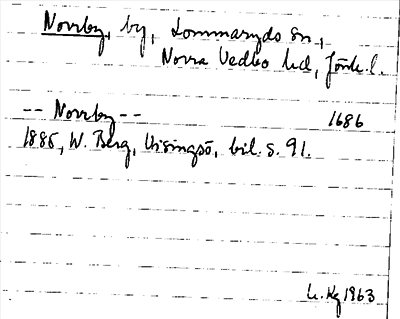 Norrby, by, Lommaryds sn,
Norra Vedbo hd, Jönk. l.
-- Norrby -- 1686
1885, W. Berg, Visingsö, bil. s. 91.
Kg 1963